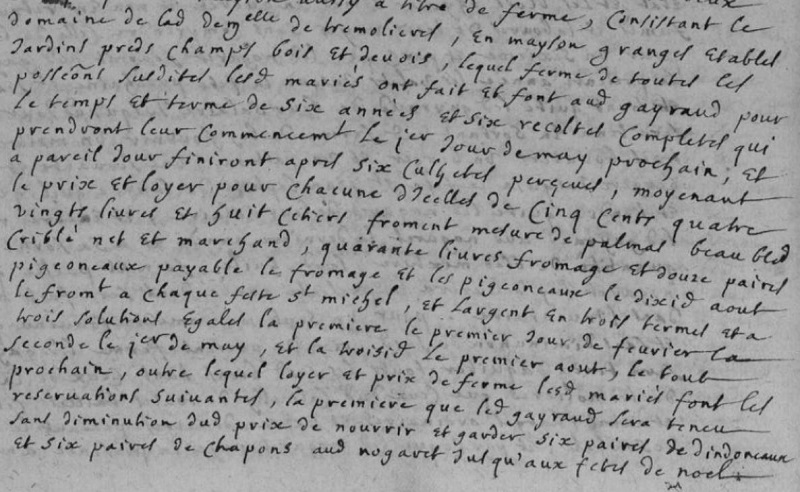 aussy a titre de ferme, Consistant le
domaine de lad demelle de tremolieres, En mayson granges Etables
Jardins preds champs bois Et devois, lequel ferme de toutes les
posseons susdites lesd mariés ont fait Et font aud gayraud pour
Le temps Et terme de six années Et six recoltes Completes qui
prendront leur Commencemt Le jer Jour de may prochain, Et
a pareil Jour finiront apres six Culhetes perçeues, moyenant
le prix Et loyer pour chacune d'Icelles de Cinq Cents quatre
vingts livres Et huit Cetiers froment mesure de palmas beau bled
Criblé net Et marchand, quarante livres fromage Et douze paires
pigeoneaux payable le fromage Et les pigeoneaux le dixid aout
le fromt a chaque feste st michel, Et Largent En trois termes Et a
trois solutions Egales la premiere le premier Jour de feuvrier la
seconde le jer de may, Et la troisid Le premier aout, le tout
prochain, outre lequel loyer Et prix de ferme lesd mariés font les
reservations suivantes, la premiere que led gayraud sera teneu
sans diminution dud prix de nourrir Et garder six paires de dindoneaux
Et six paires de chapons aud nogaret Jusqu'aux fetes de noel